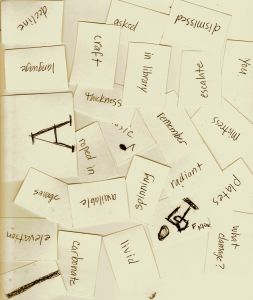 decline
asked
dismissed
craft
in library
you
language
escalate
thickness
mistress
remember
A
roped in
radiant
Plates
savage
available
spinning
what
damage?
elevation
carbonate
livid